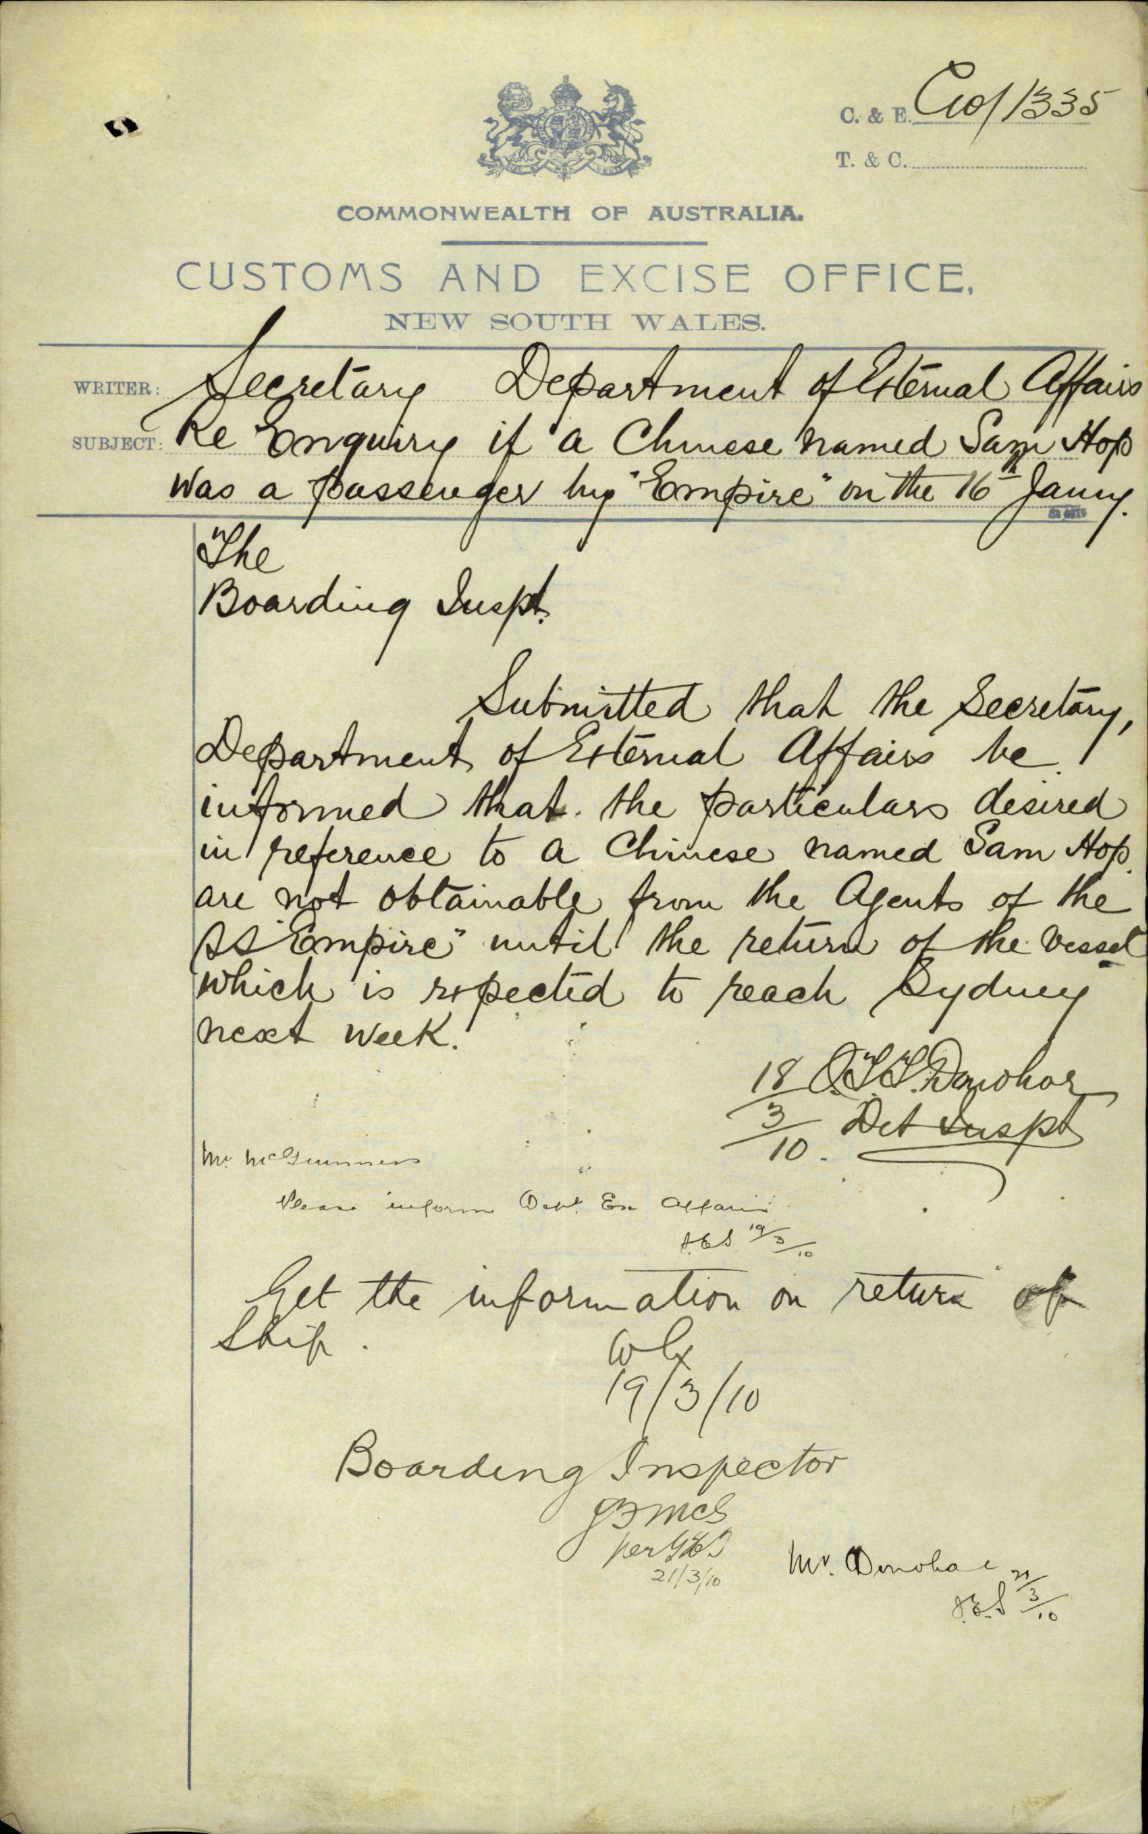 C. & E. C10/1335
T. & C.
COMMONWEALTH OF AUSTRALIA.
CUSTOMS AND EXCISE OFFICE,
NEW SOUTH WALES.
WRITER: Secretary Department of External Affairs
SUBJECT: Re Enquiry if a Chinese named Sam Hop
was a passenger by "Empire" on the 16th Janny.
The
Boarding Inspt.
Submitted that the Secretary,
Department of External Affairs be
informed that the particulars desired
in reference to a Chinese named Sam Hop
are not obtainable from the Agents of the
SS "Empire" until the return of the vessel
which is expected to reach Sydney
next week.
18/3/10. Donohoe
Det Inspt
Mr.
Please inform Dept. Ex Affairs
19/3/10
Get the information on return of
ship.
19/3/10
Boarding Inspector
JBMcS
per
21/3/10
Mr. Donohoe
21/3/10